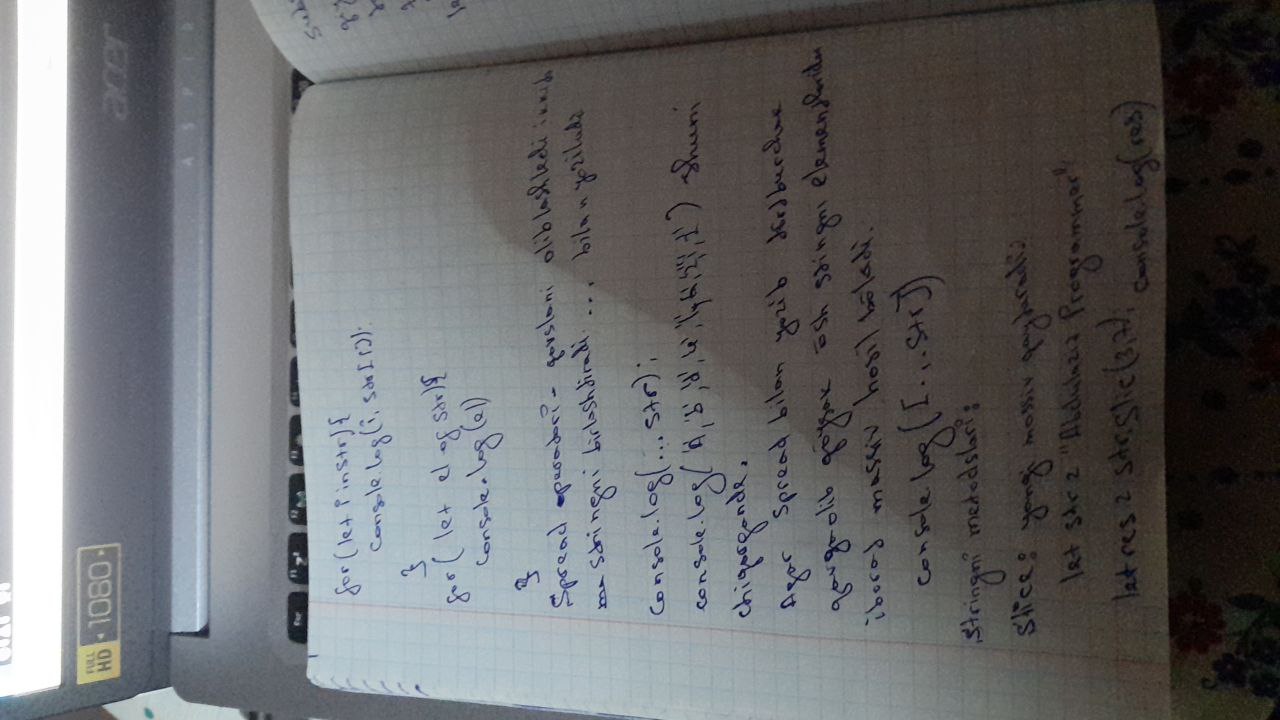 for (let i in str) {
console.log(i, str[i]);
}
for (let el of str) {
console.log(el)
}
Spread operadori - qavslarni olib tashledi
stringni birlashtiradi. ... bilan yoziladi
console.log(...str);
console.log(
chiqarganda.
Agar spread bilan yozib
qavs olib qoysak osh stringni elementlaridan
iborat massiv hosil bòladi.
console.log([...str])
Stringni metodslari:
Slice: yangi massiv qaytaradi:
let str = "Abdulaziz Programmer"
let res = str.slice(3,7); console.log(res)
acer
ASPIRE
FULL HD 1080